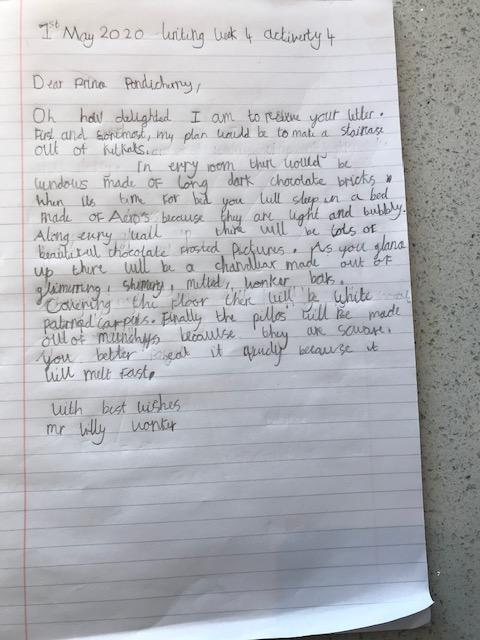 1st May 2020 Writing Week 4 activerty 4
Dear Prince Pondicherry,
Oh how delighted I am to recieve your letter.
First and foremost, my plan would be to make a staircase
out of KitKats.
In erry room ther would be
windows made of long dark chocolate bricks.
When its time for bed you will sleep in a bed
made of Aeros because they are light and bubbly.
Along erry wall there will be lots of
beautiful chocolate frosted pictures. As you glance
up there will be a chandliar made out of
glimmering, shemery, milted, wonker bars.
Covening the floor ther will be white
paterned carpets. Finally the pillos will be made
out of munchyys because they are square.
You better eat it quicly because it
will melt fast.
With best wishes
mr Willy wonker